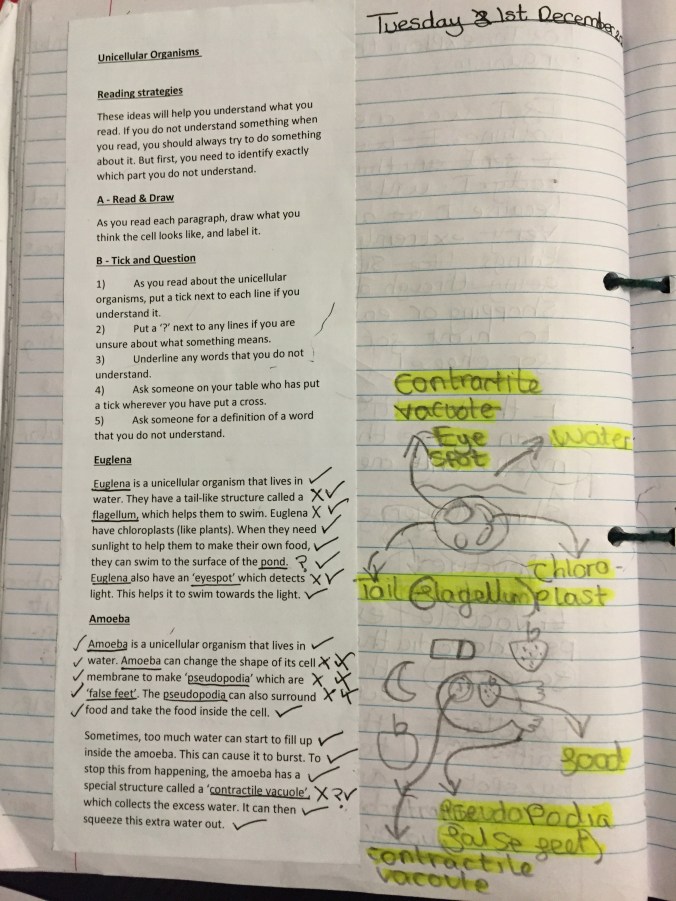 Tuesday 31st December
Unicellular Organisms
Reading strategies
These ideas will help you understand what you
read. If you do not understand something when
you read, you should always try to do something
about it. But first, you need to identify exactly
which part you do not understand.
A - Read & Draw
As you read each paragraph, draw what you
think the cell looks like, and label it.
B - Tick and Question
1) As you read about the unicellular
organisms, put a tick next to each line if you
understand it.
2) Put a '?' next to any lines if you are
unsure about what something means.
3) Underline any words that you do not
understand.
4) Ask someone on your table who has put
a tick wherever you have put a cross.
5) Ask someone for a definition of a word
that you do not understand.
Euglena
Euglena is a unicellular organism that lives in
water. They have a tail-like structure called a
flagellum, which helps them to swim. Euglena
have chloroplasts (like plants). When they need
sunlight to help them to make their own food,
they can swim to the surface of the pond. ?
Euglena also have an 'eyespot' which detects
light. This helps it to swim towards the light.
Amoeba
Amoeba is a unicellular organism that lives in
water. Amoeba can change the shape of its cell
membrane to make 'pseudopodia' which are
'false feet'. The pseudopodia can also surround
food and take the food inside the cell.
Sometimes, too much water can start to fill up
inside the amoeba. This can cause it to burst. To
stop this from happening, the amoeba has a
special structure called a 'contractile vacuole',
which collects the excess water. It can then
squeeze this extra water out.
Contractite
vacuote
Eye
spot
Water
Chloro-
plast
Tail (flagellum)
food
Pseudopodia
(false feet)
contractile
vacoute